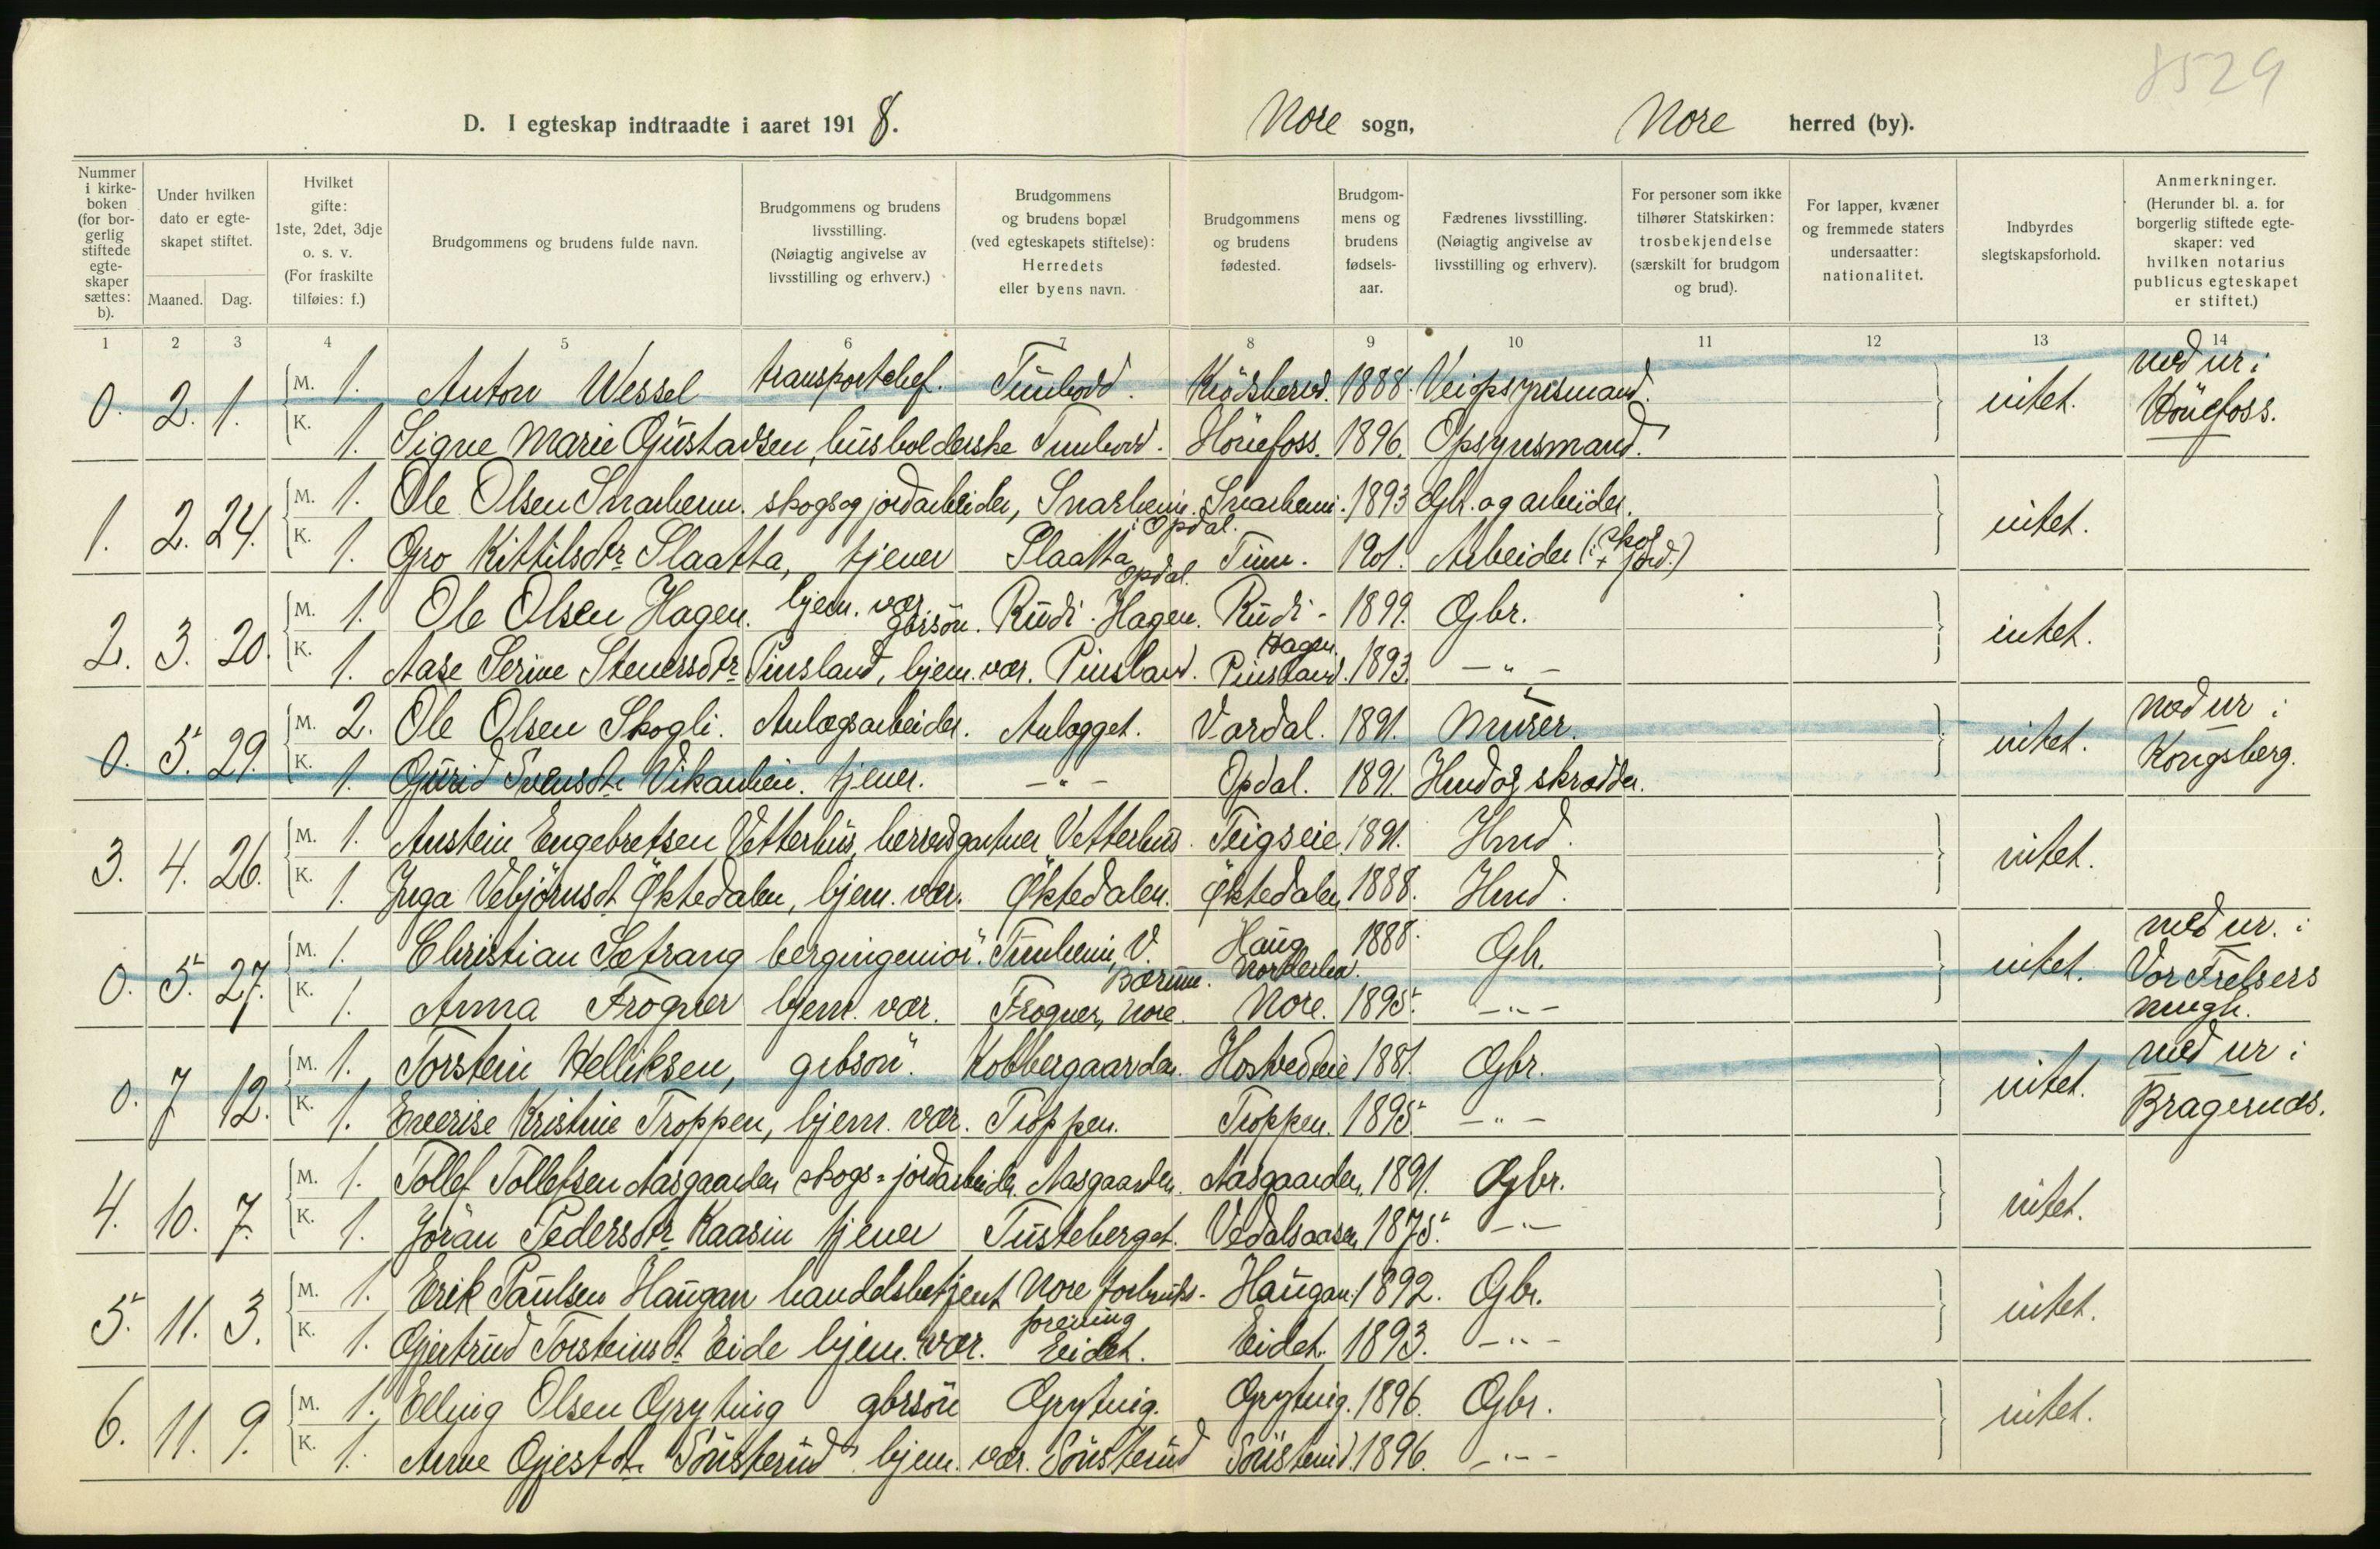 8529
D. I egteskap indtraadte i aaret 1918. Nore sogn, Nore herred (by).
Nummer i kirkeboken (for borgerlig stiftede egteskaper sættes: b).
Under hvilken dato er egteskapet stiftet.
Maaned. Dag.
Hvilket gifte: 1ste, 2det, 3dje o. s. v. (For fraskilte tilføies: f.)
Brudgommens og brudens fulde navn.
Brudgommens og brudens livsstilling. (Nøiagtig angivelse av livsstilling og erhverv.)
Brudgommens og brudens bopæl (ved egteskapets stiftelse): Herredets eller byens navn.
Brudgommens og brudens fødested.
Brudgommens og brudens fødselsaar.
Fædrenes livsstilling. (Nøiagtig angivelse av livsstilling og erhverv).
For personer som ikke tilhører Statskirken: trosbekjendelse (særskilt for brudgom og brud).
For lapper, kvæner og fremmede staters undersaatter: nationalitet.
Indbyrdes slegtskapsforhold.
Anmerkninger. (Herunder bl. a. for borgerlig stiftede egteskaper: ved hvilken notarius publicus egteskapet er stiftet.)
1 2 3 4 5 6 7 8 9 10 11 12 13 14
0. 2. 1. M. 1. Anton Wessel transportchef. Tunhovd. Krödsherred. 1888. Veiopsynsmand. intet. med ur i Hönefoss.
K. 1. Signe Marie Gustavsen, husholderske Tunhovd. Hönefoss. 1896. Opsynsmand.
1. 2. 24. M. 1. Ole Olsen Snarheim. skogs og jordarbeider, Snarheim i Opdal. Snarheim. 1893 Gbr. og arbeider. intet.
K. 1. Gro Kittilsdtr Slaatta, tjener Slaatta Opdal. Tinn. 1901. Arbeider (i skog + jord.)
2. 3. 20. M. 1. Ole Olsen Hagen. hjem. vær gbrsön. Rudi-Hagen. Rudi-Hagen. 1899. Gbr. intet.
K. 1. Aase Serine Stenersdtr Pinsland, hjem. vær. Pinsland. Pinsland. 1893. — " —
0. 5. 29. M. 2. Ole Olsen Skogli. Anlægsarbeider. Anlægget. Vardal. 1891. Murer. intet. med ur i Kongsberg.
K. 1. Gurid Svensdtr Vikanhein. tjener. — " — Opdal. 1891. Hmd og skrædder.
3. 4. 26. M. 1. Anstein Engebretsen Vetterhus, herredsgartner Vetterhus. Teigseie. 1891. Hmd. intet.
K. 1. Inga Vebjörnsdt Öktedalen, hjem. vær. Öktedalen. Öktedalen 1888. Hmd.
0. 5. 27. M. 1. Christian Sætrang bergingeniör. Tunheim, V. Bærum. Haug Norderhov. 1888. Gbr. intet. med ur. i Vor Frelsers mngh.
K. 1. Anna Frogner hjem. vær. Frogner, Nore. Nore. 1895. — " —
0. 7 12. M. 1. Torstein Helliksen, gbrsön. Kobbergaarden. Hostvedteie 1881. Gbr. intet. med ur i Bragernes.
K. 1. Kristine Troppen, hjem. vær. Troppen. Troppen. 1895. — " —
4. 10. 7. M. 1. Tollef Tollefsen Aasgaarden skogs= jordarbeider. Aasgaarden. Aasgaarden. 1891. Gbr. intet.
K. 1. Jöran Pedersdtr Kaasin tjener Tusteberget. Vedalsaasen 1875. — " —
5. 11. 3. M. 1. Erik Paulsen Haugan handelsbetjent Nore forbruksforening Haugan. 1892. Gbr. intet.
K. 1. Gjertrud Torsteinsdt Eide hjem. vær. Eidet. Eidet. 1893. — " —
6. 11. 9. M. 1. Elling Olsen Grytnig gbrsön Grytnig. Grytnig. 1896. Gbr. intet.
K. 1. Anne Gjestdtr Sönsterud hjem. vær. Sönsterud Sönsterud. 1896. — " —